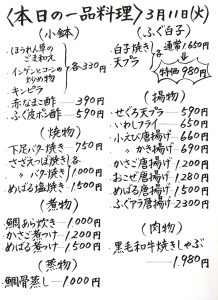 〈本日の一品料理〉3月11日(火)
(小鉢)
ほうれん草の
ごま和え
インゲンとコーンの
炒め物
各330円
キンピラ
赤なまこ酢―390円
ふぐ皮ポン酢―590円
(焼物)
下足バター焼き―750円
さざえつぼ焼き
〃 バター焼き
各1000円
めばる塩焼き―1500円
(煮物)
鯛あら炊き―1000円
かさご煮つけ―1200円
めばる煮つけ―1500円
(蒸物)
鯛骨蒸し―1000円
(ふぐ白子)
白子焼き
天プラ
通常1650円
特価980円
(揚物)
せぐろ天プラ―590円
いわしフライ―650円
小えび唐揚げ―660円
〃 かき揚げ―690円
かさご唐揚げ―1200円
おこぜ唐揚げ―1280円
めばる唐揚げ―1500円
ふぐアラ唐揚げ―2300円
(肉物)
黒毛和牛焼きしゃぶ
―1.980円